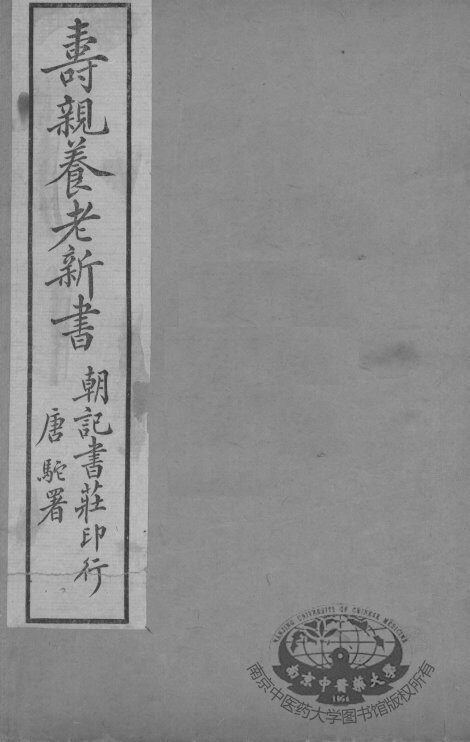 壽親養老新書
朝記書莊印行
唐駝署
NANJING UNIVERSITY OF CHINESE MEDICINE
南京中醫藥大學
1954
南京中医药大学图书馆版权所有